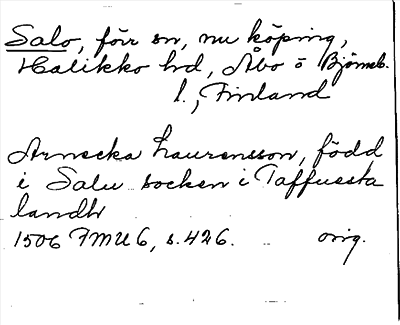 Salo, förr sn, nu köping,
Halikko hd, Åbo o Björneb.
l., Finland
Arnecka Laurensson, född
i Salu socken i Taffuesta
landh
1506 FMU 6, s. 426. orig.